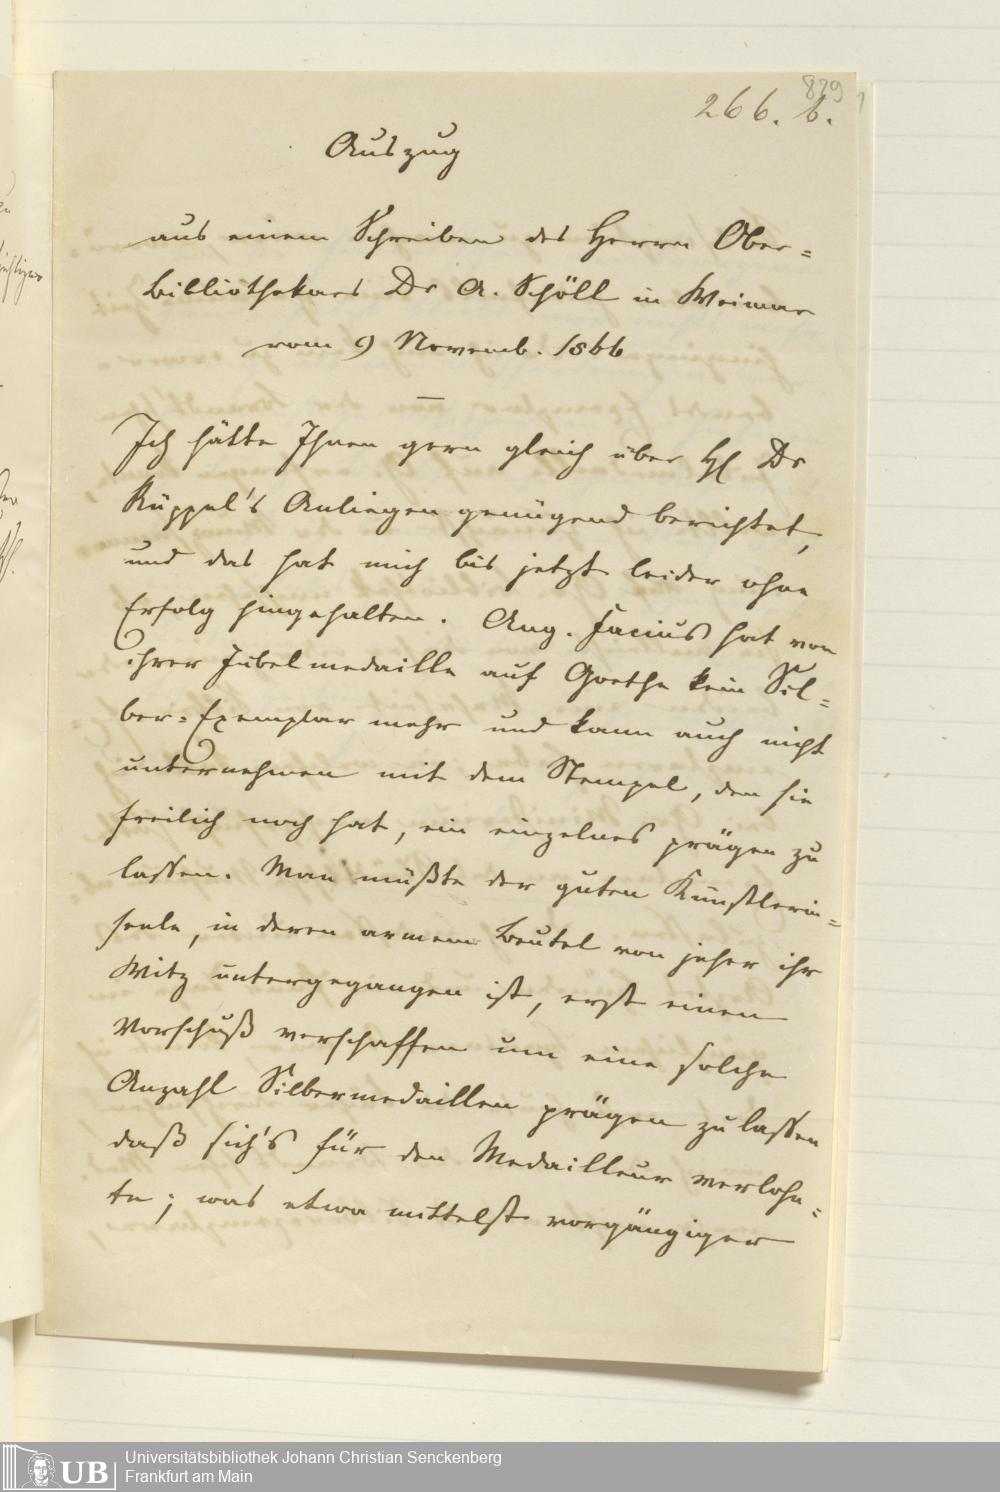 829
266. b.
Auszug
aus einem Schreiben des Herrn Ober-
Bibliothekars Dr A. Schöll in Weimar
vom 9 Novemb. 1866
Ich hätte Ihnen gern gleich über H Dr
Rüppel's Anliegen genügend berichtet,
und das hat mich bis jetzt leider ohne
Erfolg hingehalten. Ang. Facius hat von
ihrer Jubelmedaille auf Goethe kein Sil-
ber-Exemplar mehr und kann auch nicht
unternehmen mit dem Stempel, den sie
freilich noch hat, ein einzelnes prägen zu
lassen. Man müßte der guten Künstlerin-
seele, in deren armem Beutel von jeher ihr
Witz untergegangen ist, erst einen
Vorschuß verschaffen um eine solche
Anzahl Silbermedaillen prägen zu lassen
daß sich's für den Medailleur verlohn-
te; was etwa mittelst vorgängiger
Universitätsbibliothek Johann Christian Senckenberg
Frankfurt am Main
UB